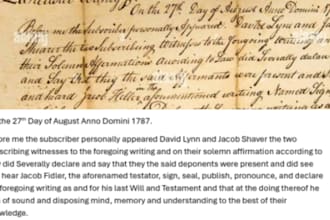 On the 27th Day of August Anno Domini 178
me the Subscriber personally Appeared David Lynn and
the two Subscribing Witnesses to the Foregoing writing and on
their Solemn Affirmations According to Law did Severally declare
and Say that they the said Affirmants were present and did
and heard Jacob the aforementioned writing Named Sign
the 27th Day of August Anno Domini 1787.
ore me the subscriber personally appeared David Lynn and Jacob Shaver the two
scribing witnesses to the foregoing writing and on their solemn affirmation according to
did Severally declare and say that they the said deponents were present and did see
hear Jacob Fidler, the aforenamed testator, sign, seal, publish, pronounce, and declare
foregoing writing as and for his last Will and Testament and that at the doing thereof he
of sound and disposing mind, memory and understanding to the best of their
wledge.